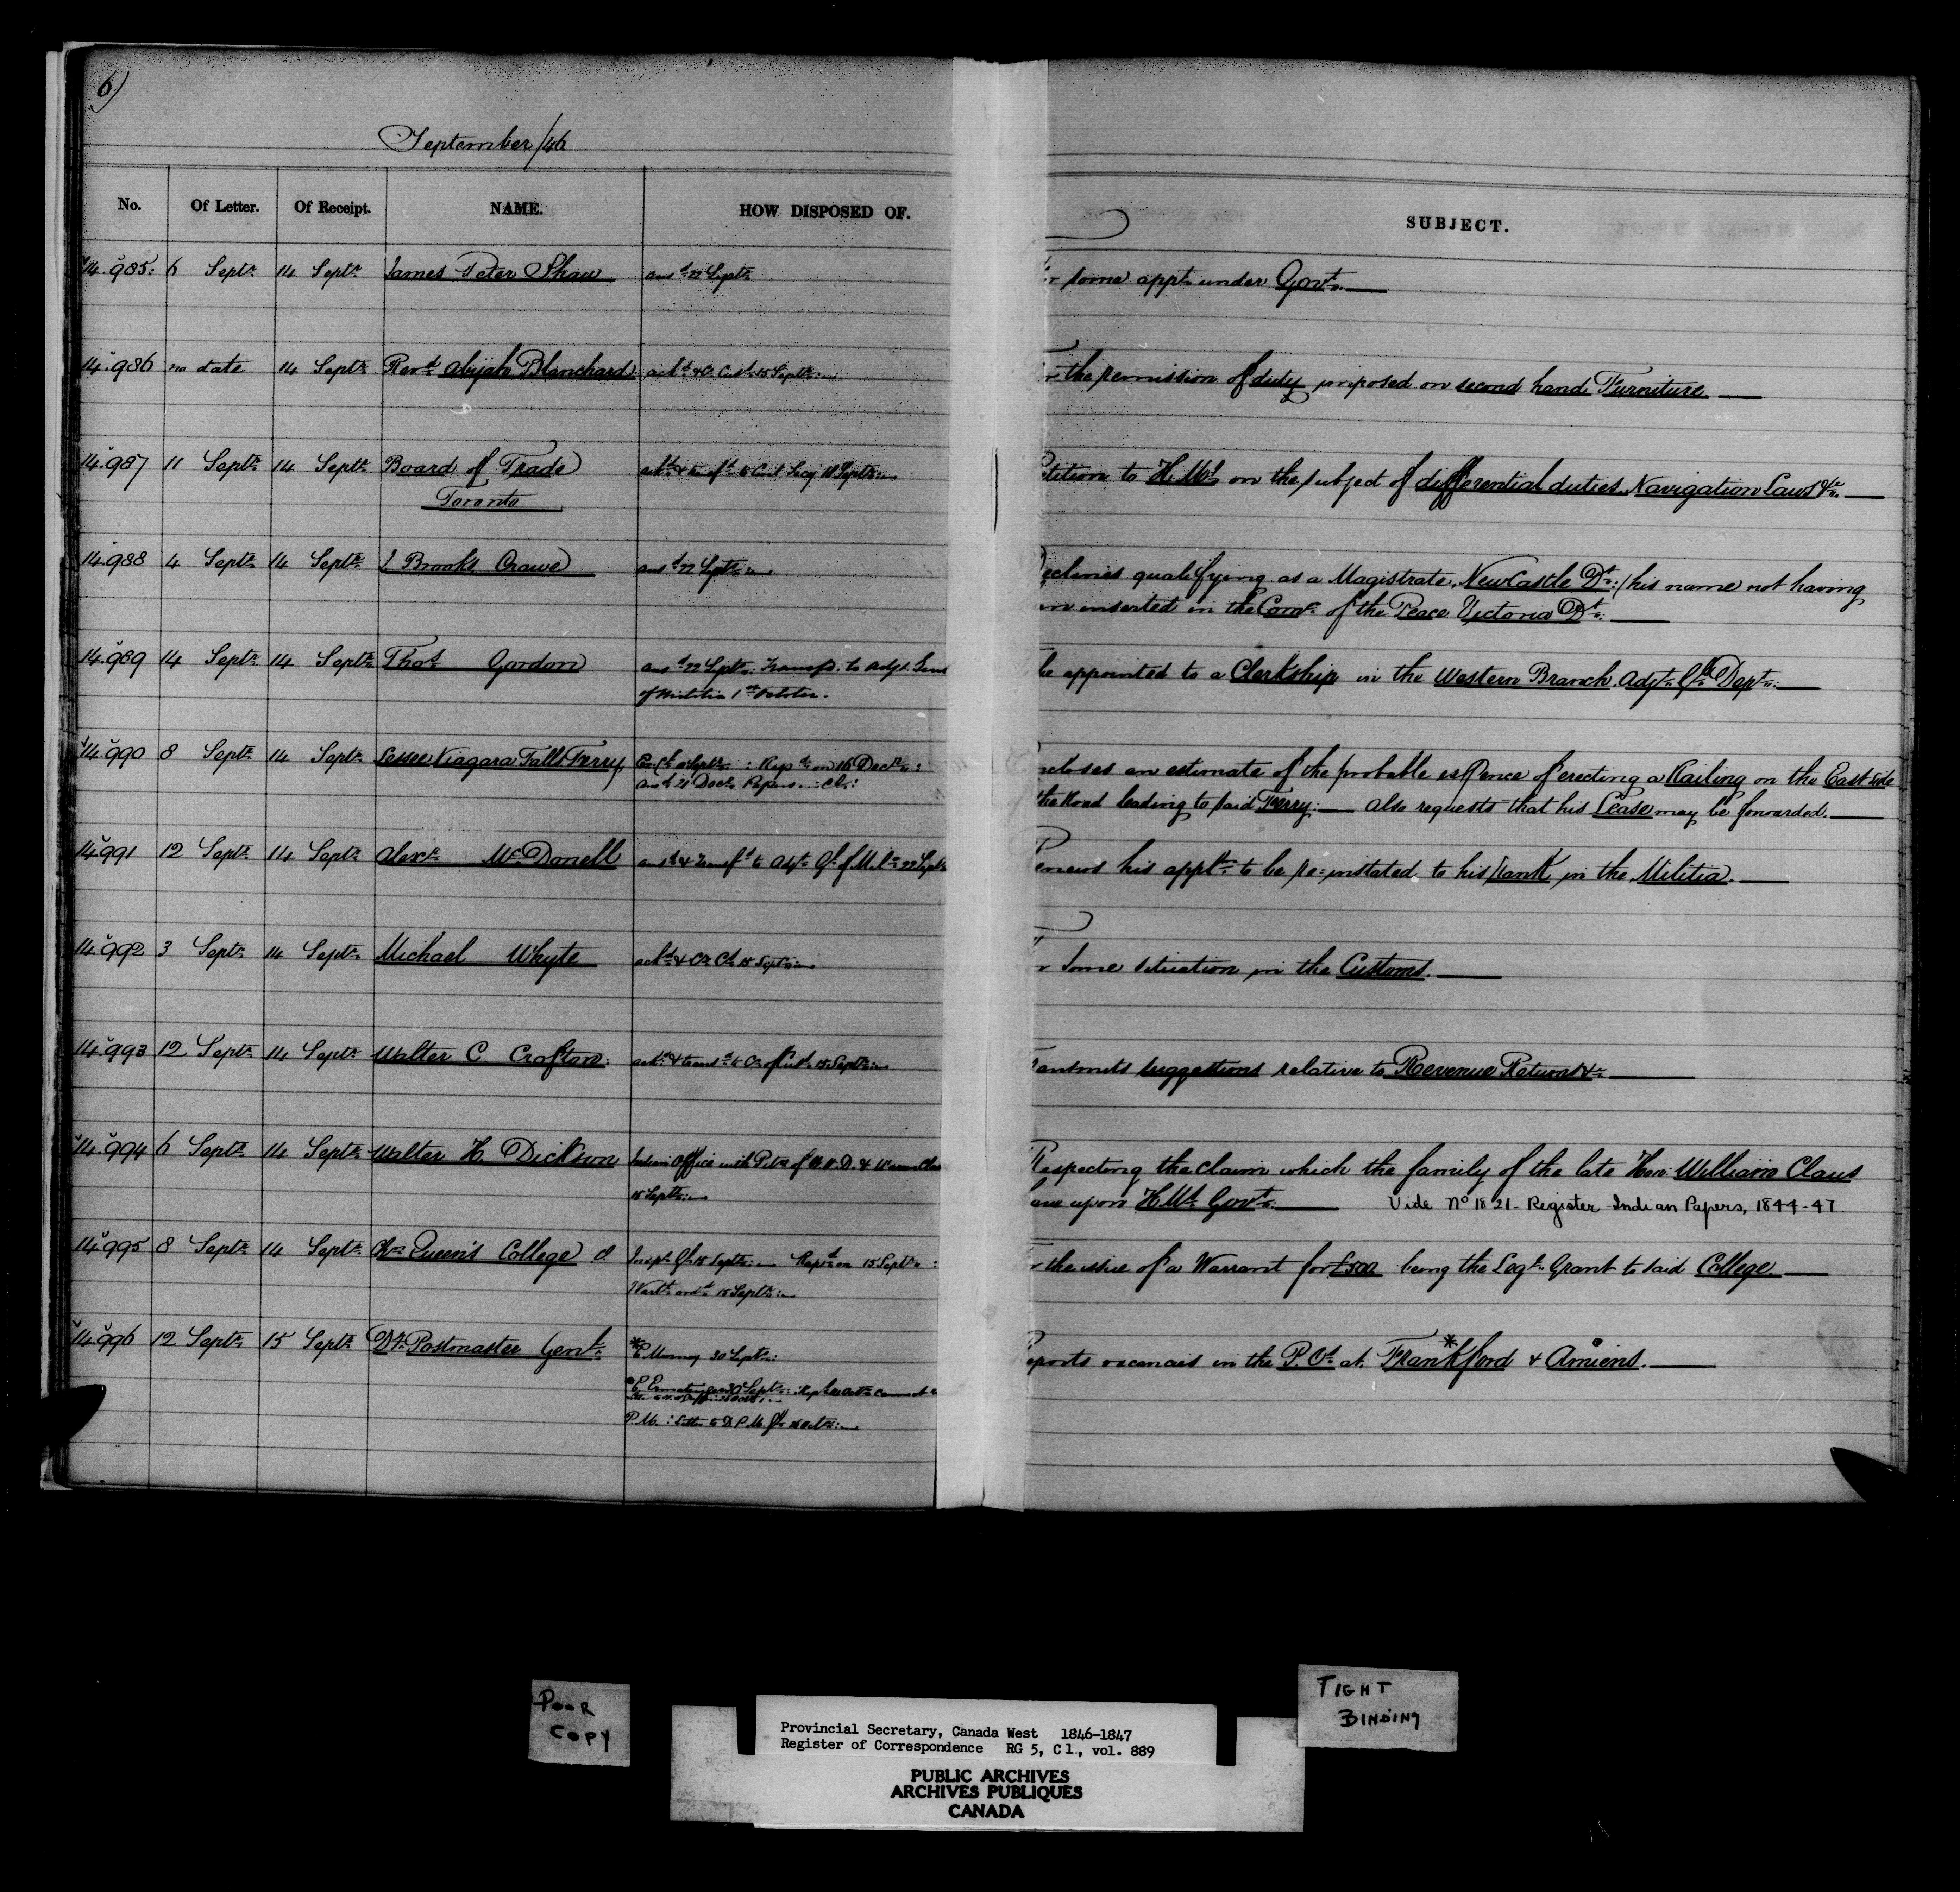 6)
September/46
No. Of Letter. Of Receipt. NAME. HOW DISPOSED OF. SUBJECT.
14.985. 6 Septr. 14 Septr. James Peter Shaw ansd 22 Septr. some appt. under Govt.
14.986 no date 14 Septr. Revd. Abijah Blanchard ackd & C. Cust. 15 Septr. the remission of duty imposed on second hand Furniture
14.987 11 Septr. 14 Septr. Board of Trade ackd & transfd to Civil Secy 18 Septr. tition to H.Mys. on the subject of differential duties, Navigation Laws &c.
Toronto
14.988 4 Septr. 14 Septr. J Brooks Crowe ansd 22 Septr. eclines qualifying as a Magistrate, NewCastle Dt. (his name not having
en inserted in the Comn. of the Peace Victoria Dt.
14.989 14 Septr. 14 Septr. Thos. Gordon ansd 22 Septr. Transfd. to Adjt. Genl be appointed to a Clerkship in the Western Branch, Adjt. Gls Dept.
of Militia 1st October.
14.990 8 Septr. 14 Septr. Lessee Niagara Falls Ferry Septr. : Repd. on 16 Decr. : ncloses an estimate of the probable exPence of erecting a Railing on the East side
Ansd 21 Decr. Papers in the Road leading to said Ferry. Also requests that his Lease may be forwarded.
14.991 12 Septr. 14 Septr. Alexr. McDonell ansd & Transfd to Adjt. Gl. of Mila. 22 Septr enews his appln. to be re=instated to his rank in the Militia.
14.992 3 Septr. 14 Septr. Michael Whyte ackd & Septr. some situation in the Customs.
14.993 12 Septr. 14 Septr. Walter C. Crofton. ackd & transd to C. of Cust. 15 Septr. ansmits suggestions relative to Revenue Returns &c.
14.994 6 Septr. 14 Septr. Walter H. Dickson Indian Office with Petn of W. H. D. & Warren Claus Respecting the claim which the family of the late Hon: William Claus
15 Septr. ave upon H.Ms. Govt. Vide No 1821 - Register Indian Papers, 1844-47.
14.995 8 Septr. 14 Septr. Queen's College Inspr. Gl. 15 Septr. Repd on 15 Septr. : the issue of a Warrant for £500 being the Legr. Grant to said College.
Wart. ordd 15 Septr.
14.996 12 Septr. 15 Septr. Dy. Postmaster Genl. * E Murney 30 Septr. eports vacancies in the P.Os. at Frankford* & Amiens.
P.M. : Letter to D.P.M. Gl. Octr.
POOR
COPY
TIGHT
BINDING
Provincial Secretary, Canada West 1846-1847
Register of Correspondence RG 5, C 1., vol. 889
PUBLIC ARCHIVES
ARCHIVES PUBLIQUES
CANADA